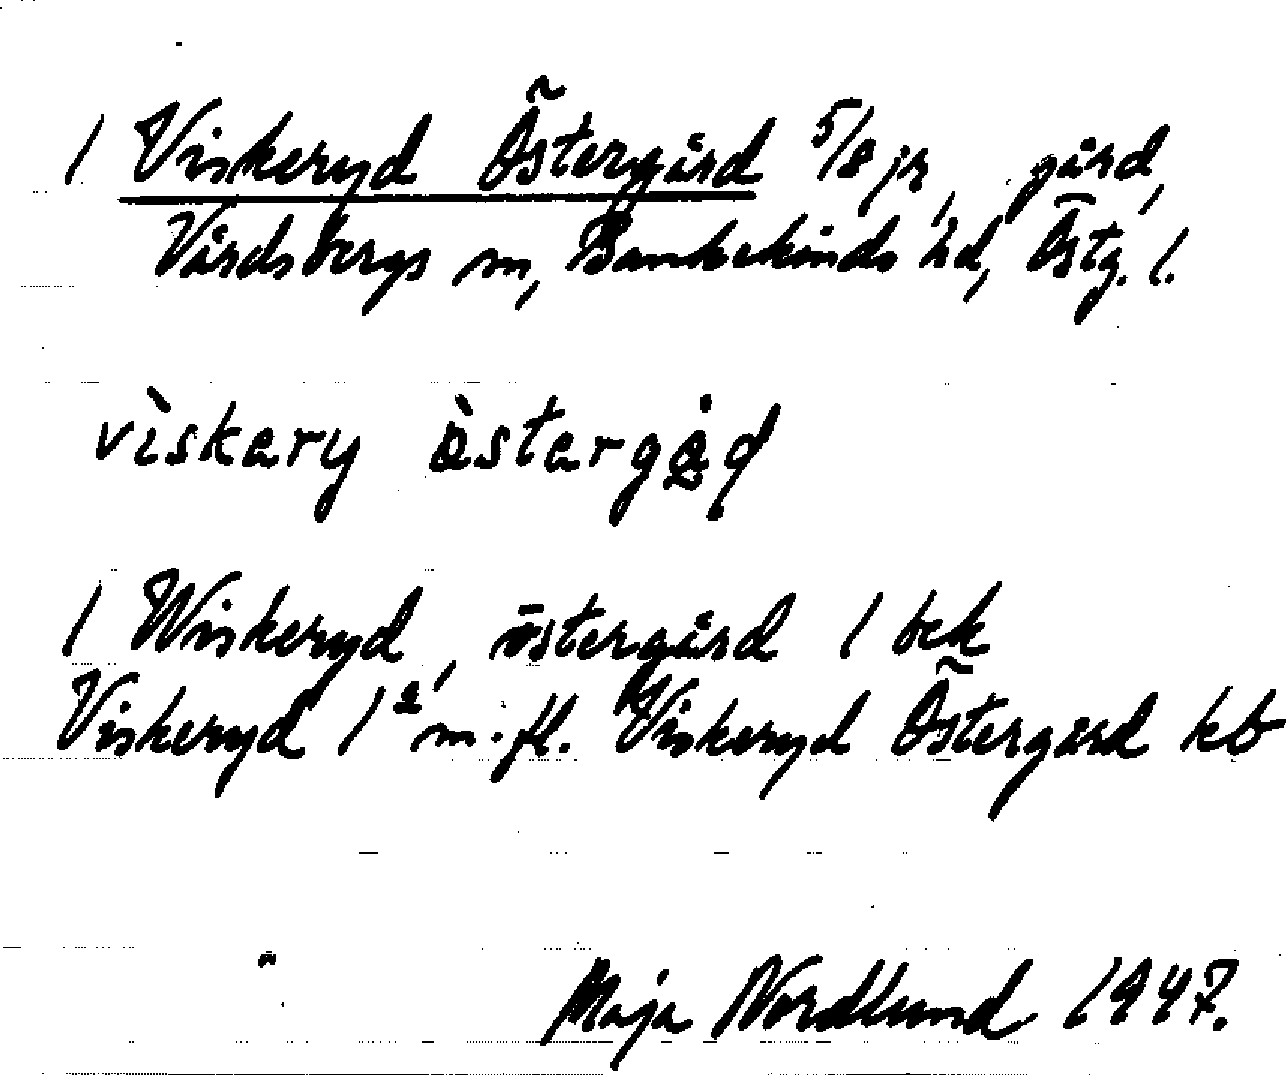 1 Viskeryd Östergård 5/8 jr, gård,
Vårdsbergs sn, Bankekinds hd, Östg. l.
vìskery östergåd
1 Wiskeryd, östergård 1 bek
Viskeryd 1² m.fl. Viskeryd Östergård kb
Maja Nordlund 1947.